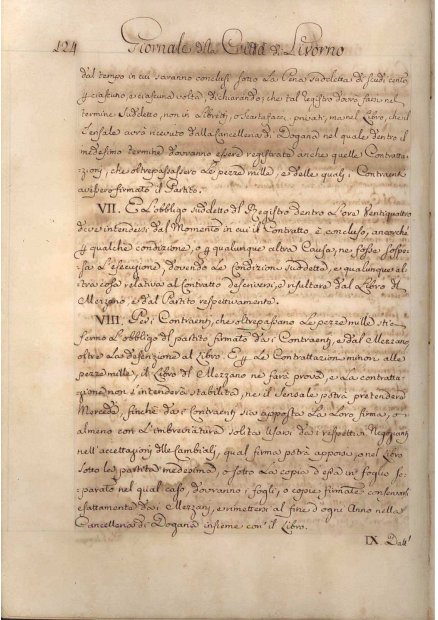 124 Giornale della Città di Livorno
dal tempo in cui saranno conclusi sotto La Pena suddetta di scudi cento
p ciascuno, e ciascuna volta, dichiarando; che tal registro dovrà farsi nel
termine suddetto, non in Libretti, o Scartafacci privati, ma nel Libro, che il
Sensale avrà ricevuto dalla Cancelleria di Dogana nel quale dentro il
medesimo termine dovranno essere registrate anche quelle Contratta-
zioni, che oltrepassassero le pezze mille, e delle quali i Contraenti
avessero firmato il Partito.
VII. E L'obbligo suddetto del Registro dentro L'ore Ventiquattro
deve intendersi dal Momento in cui il Contratto è concluso, ancorchè
p qualche condizione, o p qualunque altra Causa, ne fosse sospe-
sa L'esecuzione, dovendo Le Condizioni suddette, e qualunque al-
tra cosa relativa al Contratto descriversi, e risultare dal Libro del
Mezzano, e dal Partito respettivamente.
VIII. Per i Contraenti, che oltrepassano Le pezze mille sta
fermo L'obbligo del partito firmato dai Contraenti, e dal Mezzano
oltre La descrizione al Libro. E p Le Contrattazioni minori alle
pezze mille, il Libro del Mezzano ne farà prova, e La contratta-
zione non s'intenderà stabilita, ne il Sensale potrà pretendere
Mercede, finchè dai Contraenti sia apposta La Loro firma, o
almeno con L'imbreviatura solita usarsi dai respettivi Negozianti
nell'accettazioni delle Cambiali, qual firma potrà apporsi, o nel Libro
sotto La partita medesima, o sotto La copia d'essa in foglio se-
parato nel qual caso, dovranno i fogli, o copie firmate conservarsi
esattamente dai Mezzani, e rimettersi al fine d'ogni Anno nella
Cancelleria di Dogana insieme con il Libro.
IX Dall'